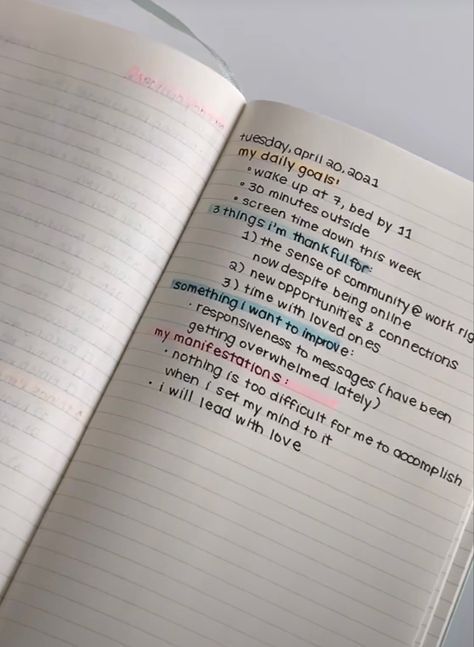 tuesday, april 20, 2021
my daily goals:
• wake up at 7, bed by 11
• 30 minutes outside
• screen time down this week
3 things i'm thankful for:
1) the sense of community @ work rig
now despite being online
2) new opportunities & connections
3) time with loved ones
something i want to improve:
• responsiveness to messages (have been
getting overwhelmed lately)
my manifestations:
• nothing is too difficult for me to accomplish
when i set my mind to it
• i will lead with love